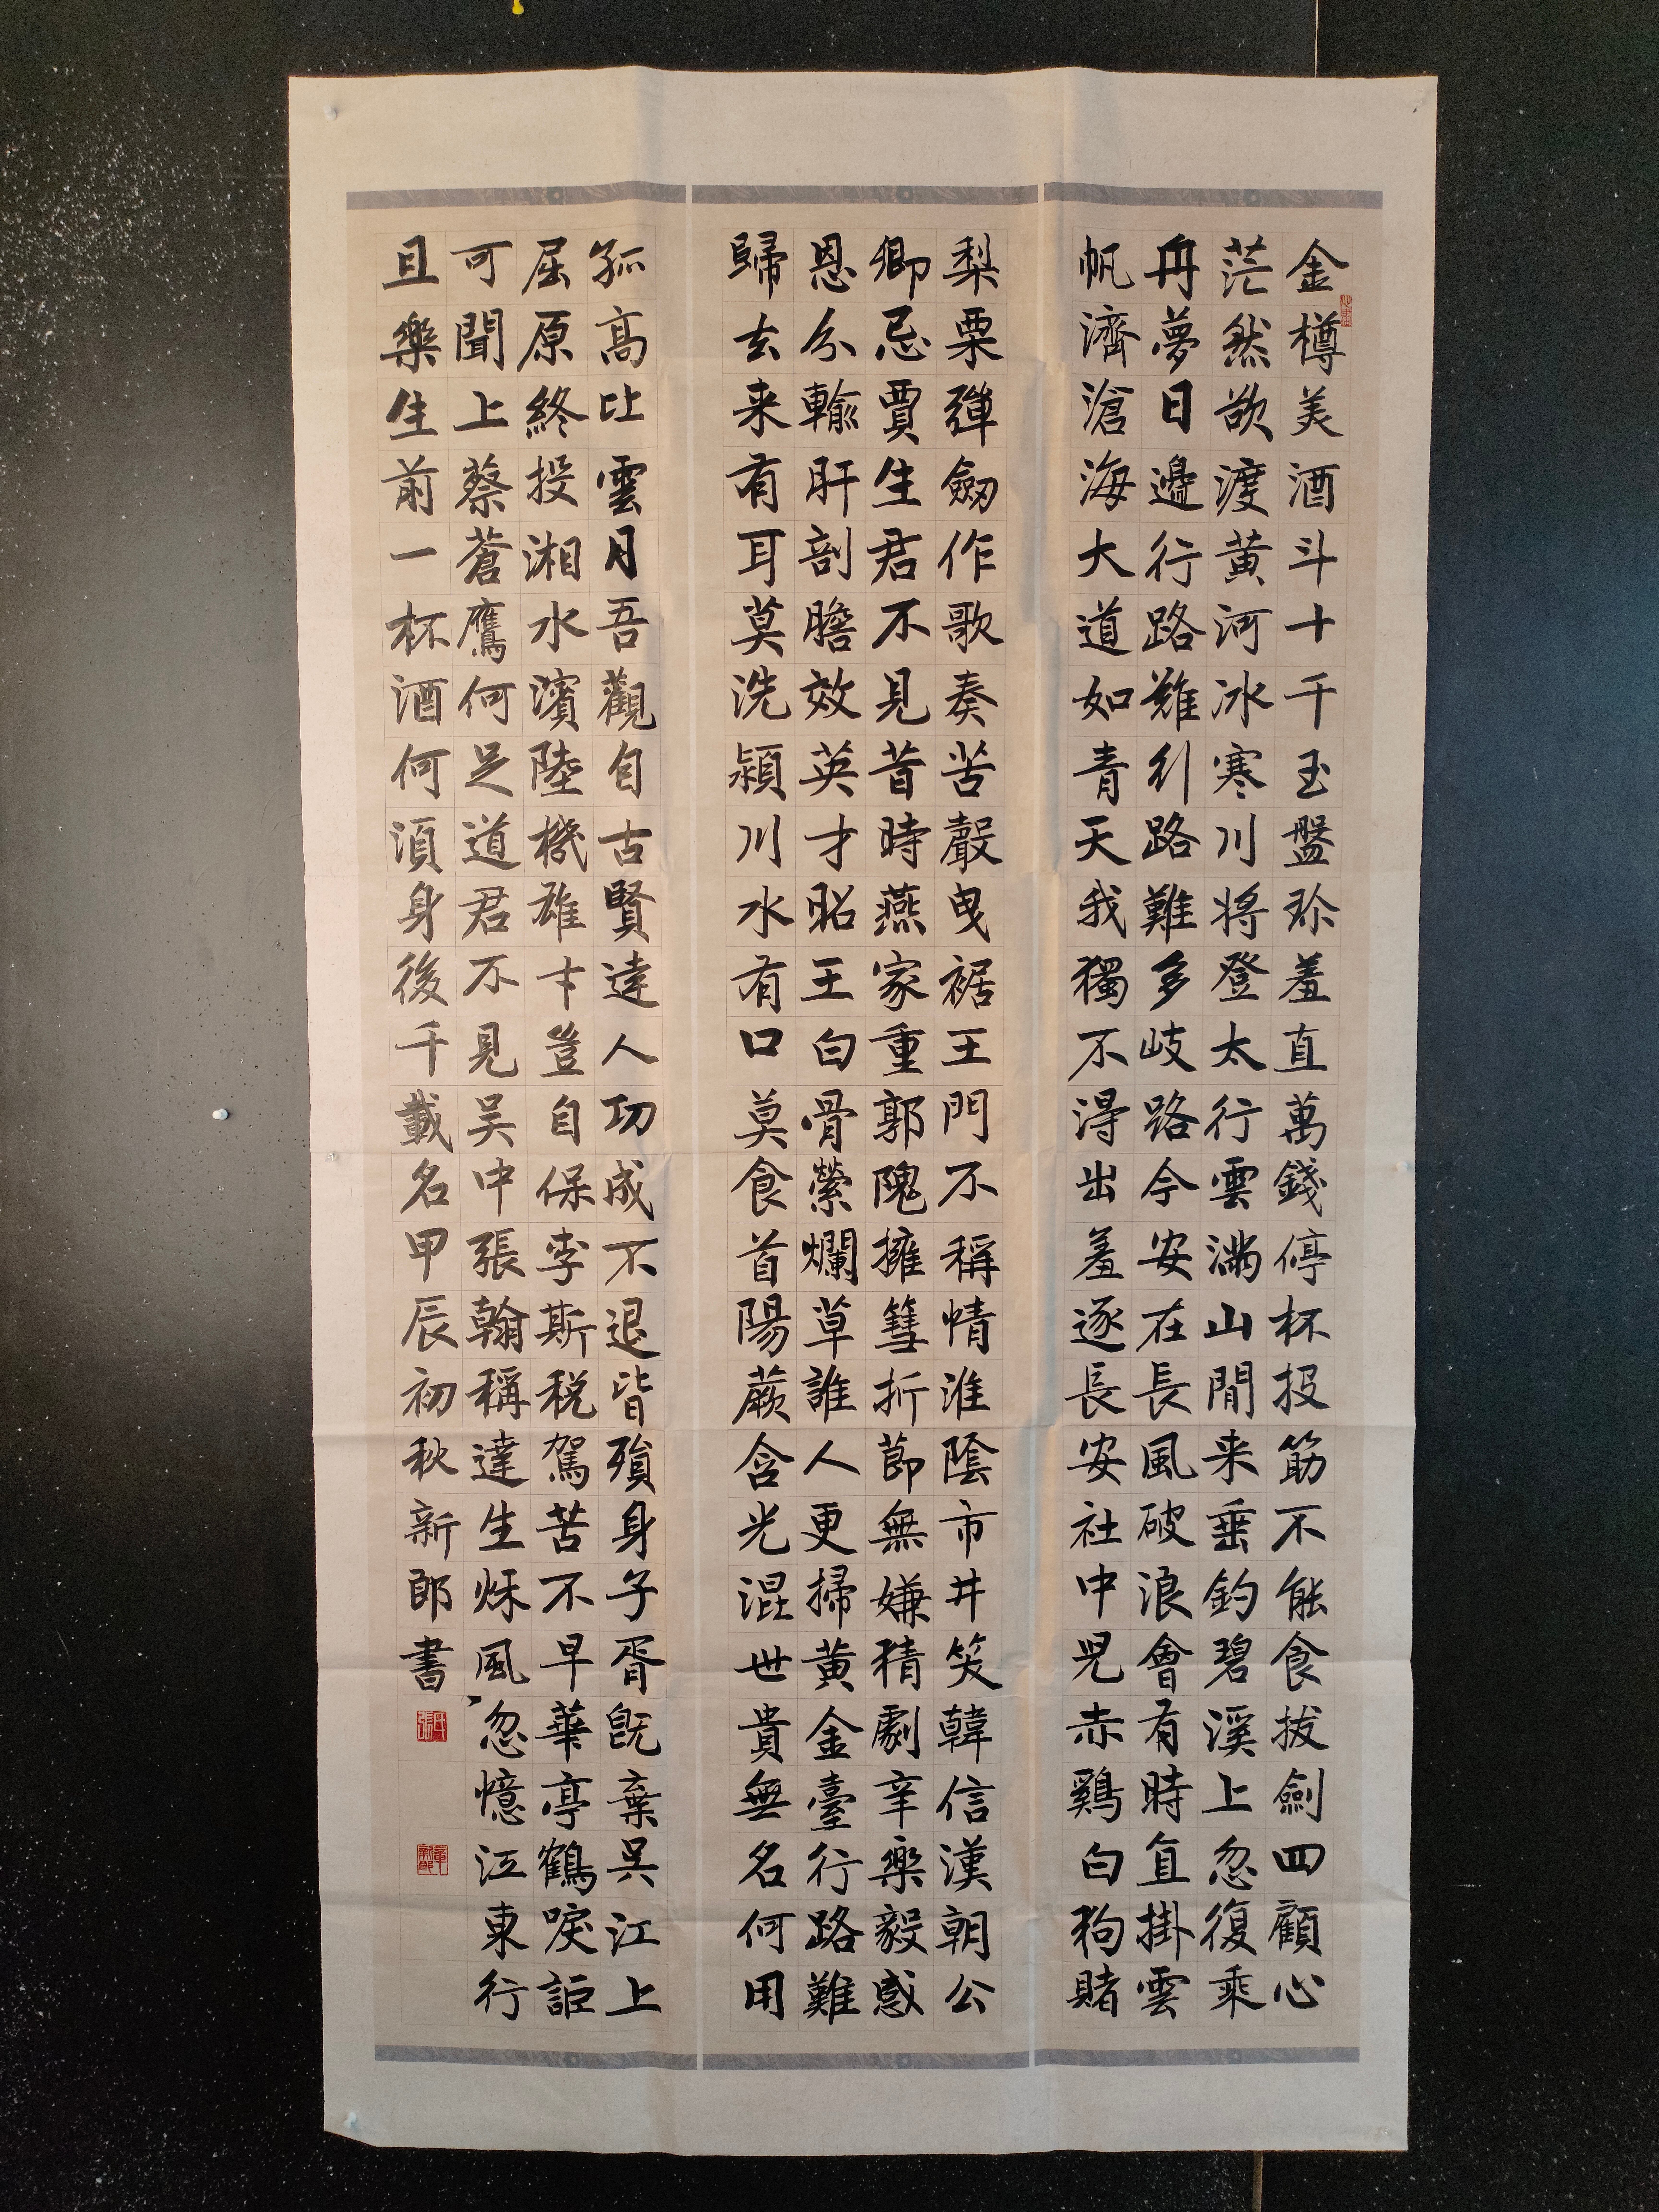 金樽美酒斗十千玉盤珎羞直萬錢停杯投筯不能食拔劍四顧心
茫然欲渡黃河冰寒川將登太行雲滿山閒来垂釣碧溪上忽復乘
舟夢日邊行路難行路難多岐路今安在長風破浪會有時直掛雲
帆濟滄海大道如青天我獨不得出羞逐長安社中兒赤鷄白狗賭
梨栗彈劒作歌奏苦聲曳裾王門不稱情淮陰市井笑韓信漢朝公
卿忌賈生君不見昔時燕家重郭隗擁篲折節無嫌猜劇辛樂毅感
恩分輸肝剖膽效英才昭王白骨縈爛草誰人更掃黃金臺行路難
歸去来有耳莫洗潁川水有口莫食首陽蕨含光混世貴無名何用
孤高比雲月吾觀自古賢達人功成不退皆殞身子胥既棄吳江上
屈原終投湘水濱陸機雄才豈自保李斯稅駕苦不早華亭鶴唳詎
可聞上蔡蒼鷹何足道君不見吴中張翰稱達生秌風忽憶江東行
且樂生前一杯酒何須身後千載名甲辰初秋新郎書